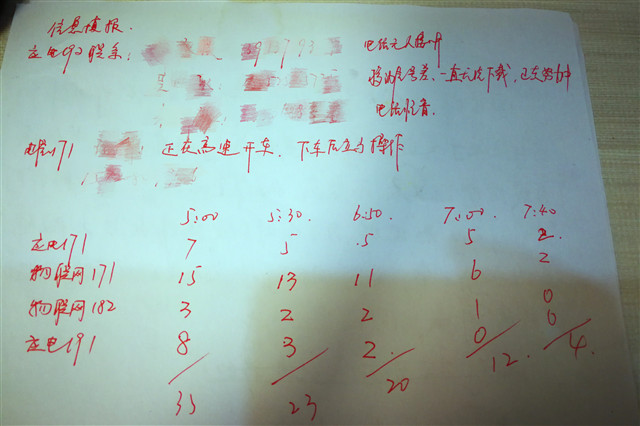 信息填报.
应电192联系: 电话无人接听
信号差、一直无法下载,正在努力中
电话忙音.
电气171 正在高速开车、下车后立马操作
5:00 5:30. 6:50. 7:00. 7:40
应电171 7 5 .5 5 2.
物联网171 15 13 11 6 2
物联网182 3 2 2 1 0
应电191 8 3 2. 0 0
33 23 20 12. 4.